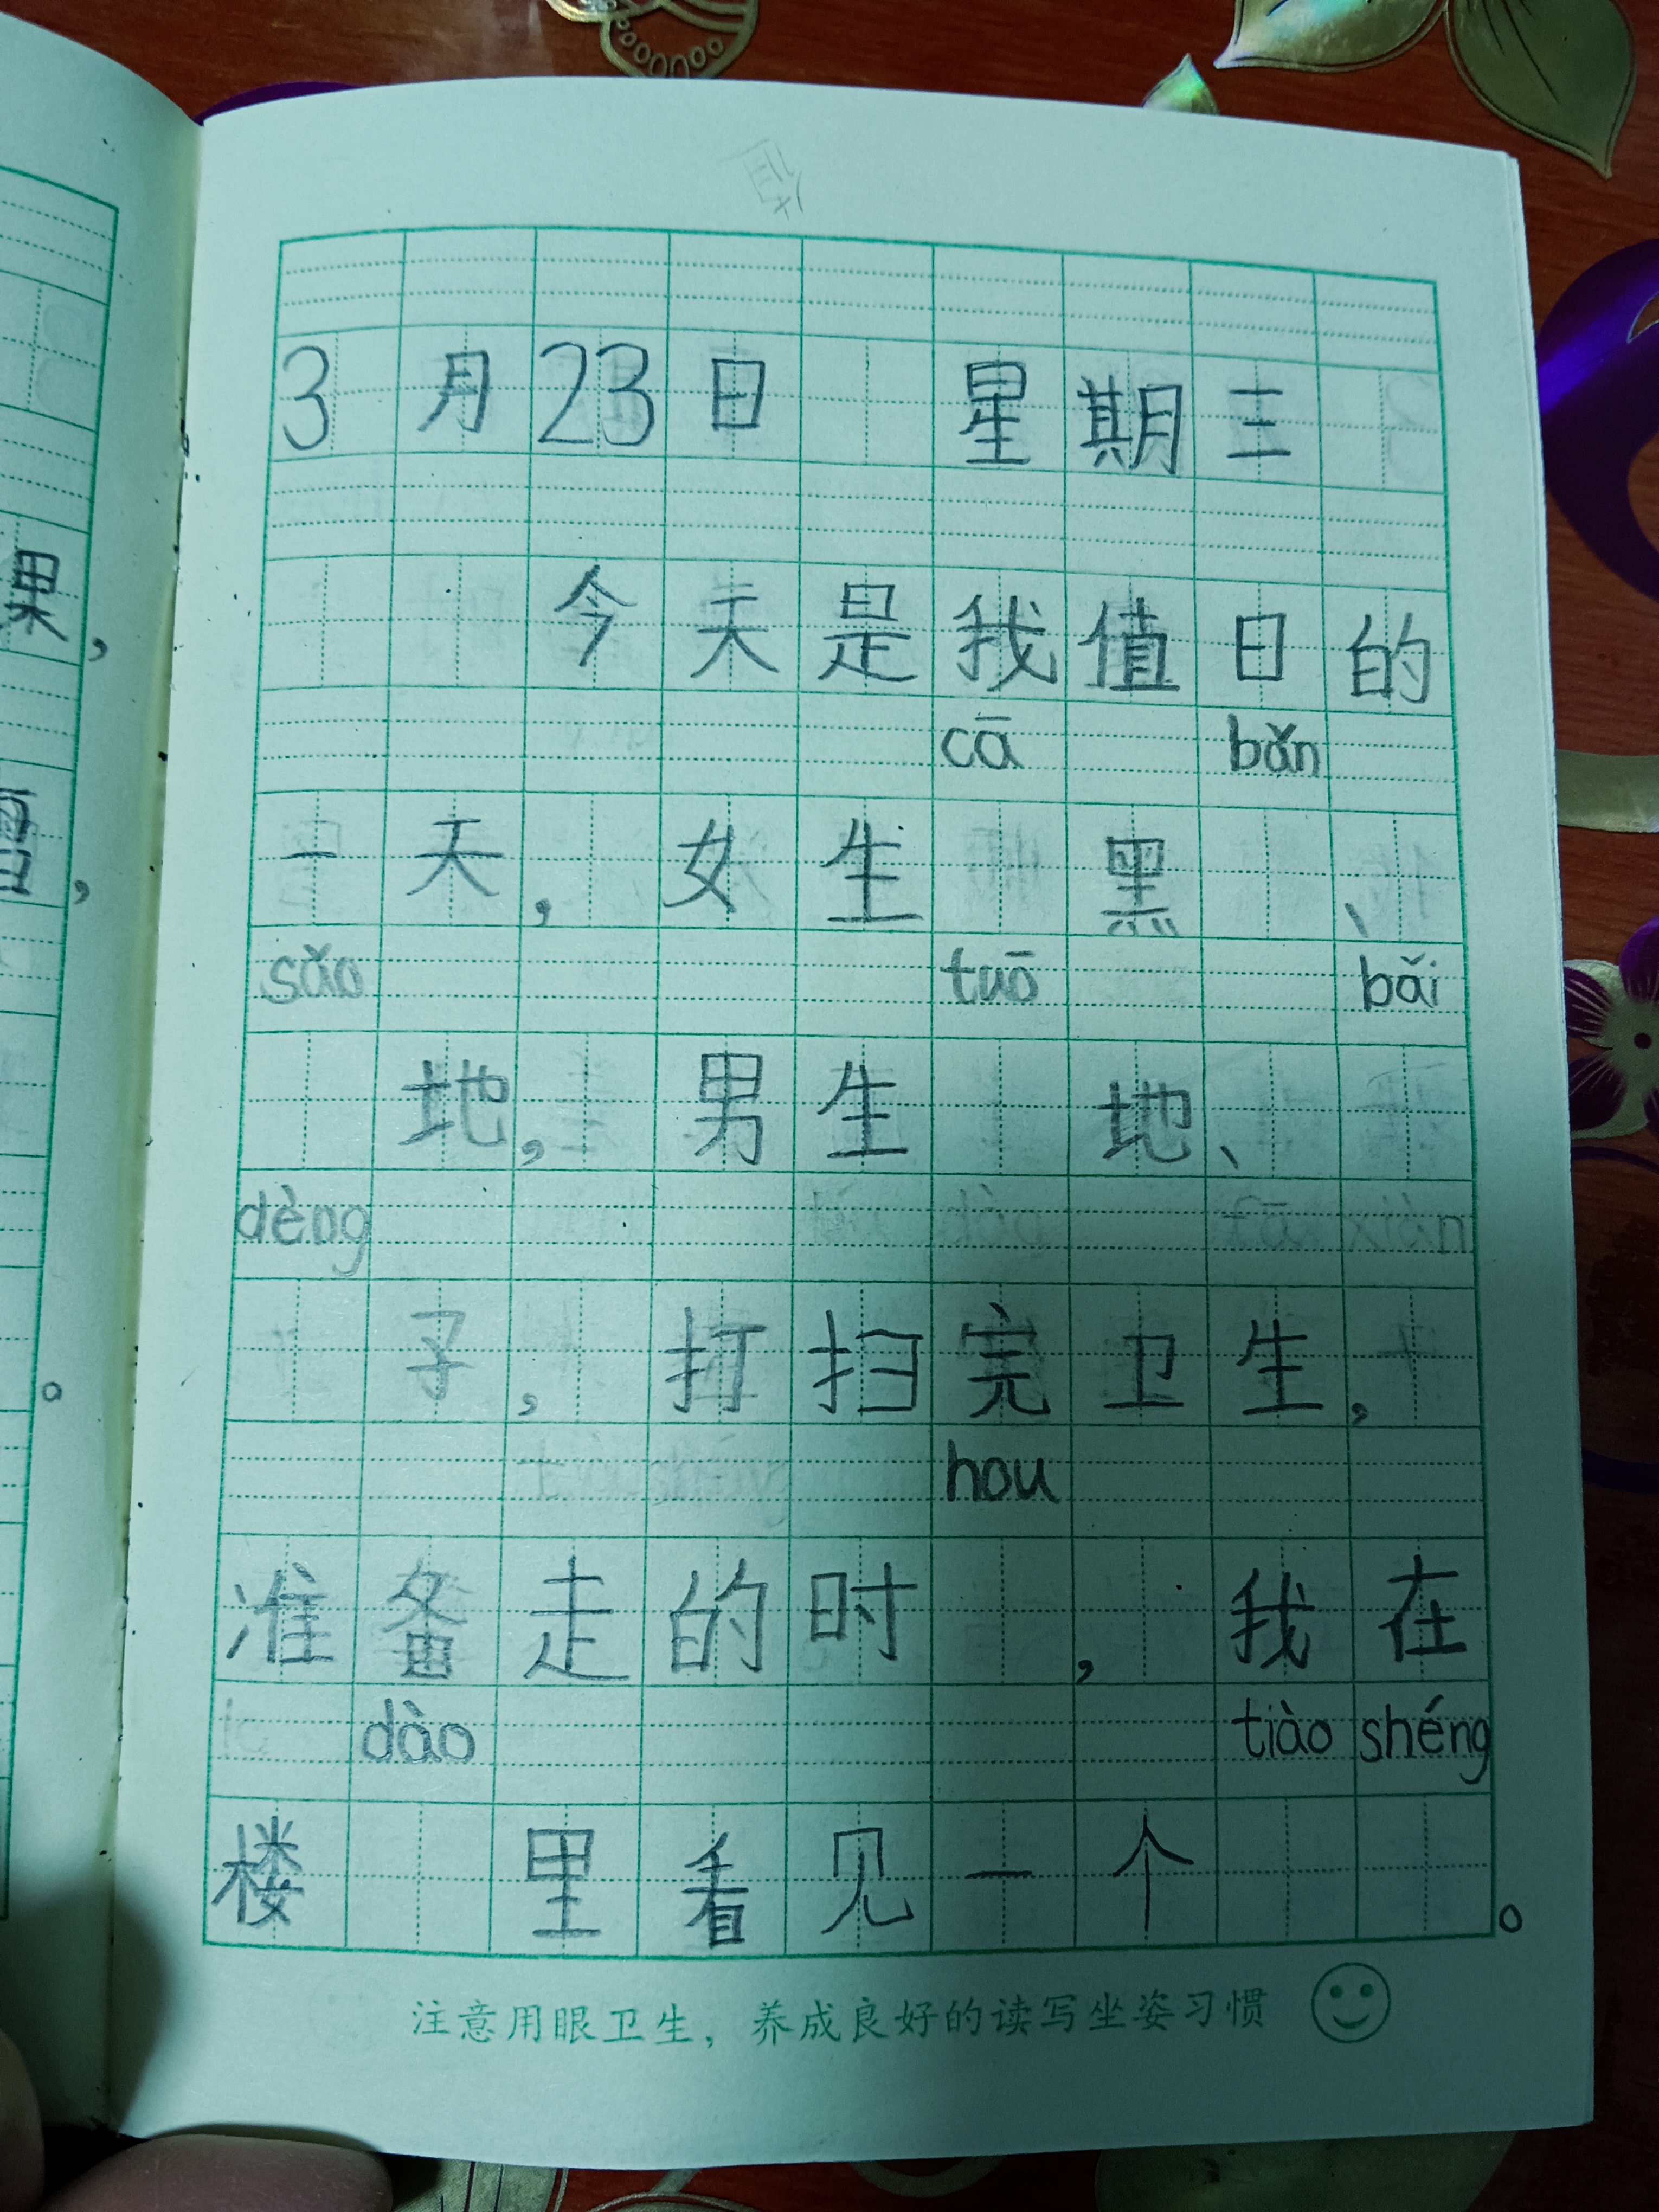 值
3月23日 星期三
今天是我值日的
cā bǎn
一天，女生 黑 、
sǎo tuō bǎi
地，男生 地、
dèng
子，打扫完卫生，
hou
准备走的时 ，我在
dào tiào shéng
楼 里看见一个 。
注意用眼卫生，养成良好的读写坐姿习惯
果，
。